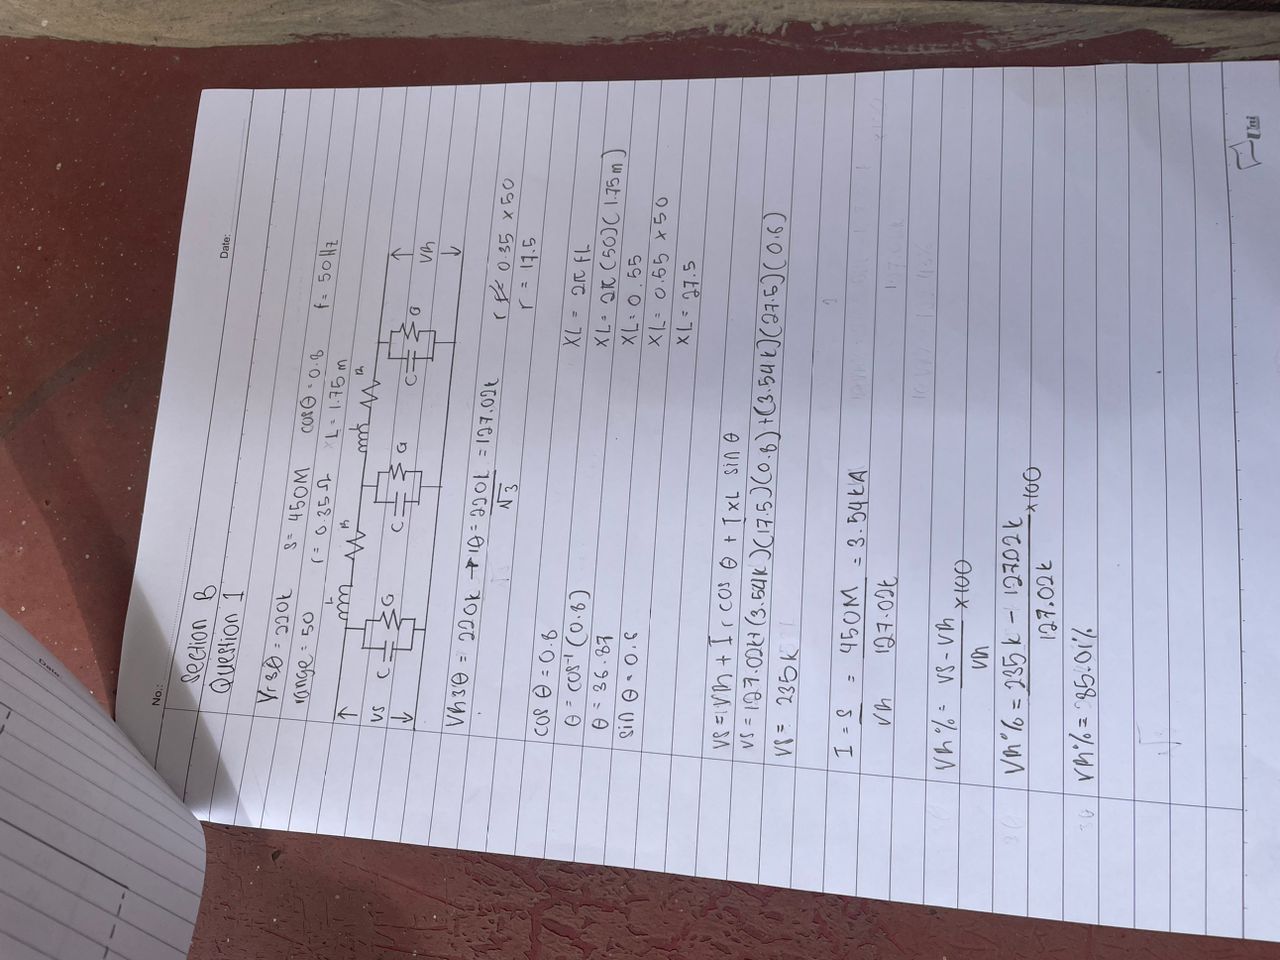 No.:
Date:
Section B
Question 1
Vr3θ = 220k S = 450M cos θ = 0.8 f = 50Hz
range = 50 r = 0.35Ω L = 1.75 m
L R L R
Vs C G C G C G VR
VR3θ = 220k → 1θ = 220k = 127.02k
√3
r = 0.35 × 50
r = 17.5
cos θ = 0.8
θ = cos⁻¹ (0.8)
θ = 36.87
sin θ = 0.6
XL = 2π fL
XL = 2π (50)(1.75 m)
XL = 0.55
XL = 0.55 × 50
XL = 27.5
VS = VR + I r cos θ + I XL sin θ
VS = 127.02k + (3.54k)(17.5)(0.8) + (3.54k)(27.5)(0.6)
VS = 235k
I = S = 450M = 3.54kA
VR 127.02k
VR% = VS - VR × 100
VR
VR% = 235k - 127.02k × 100
127.02k
VR% = 85.01%
Uni